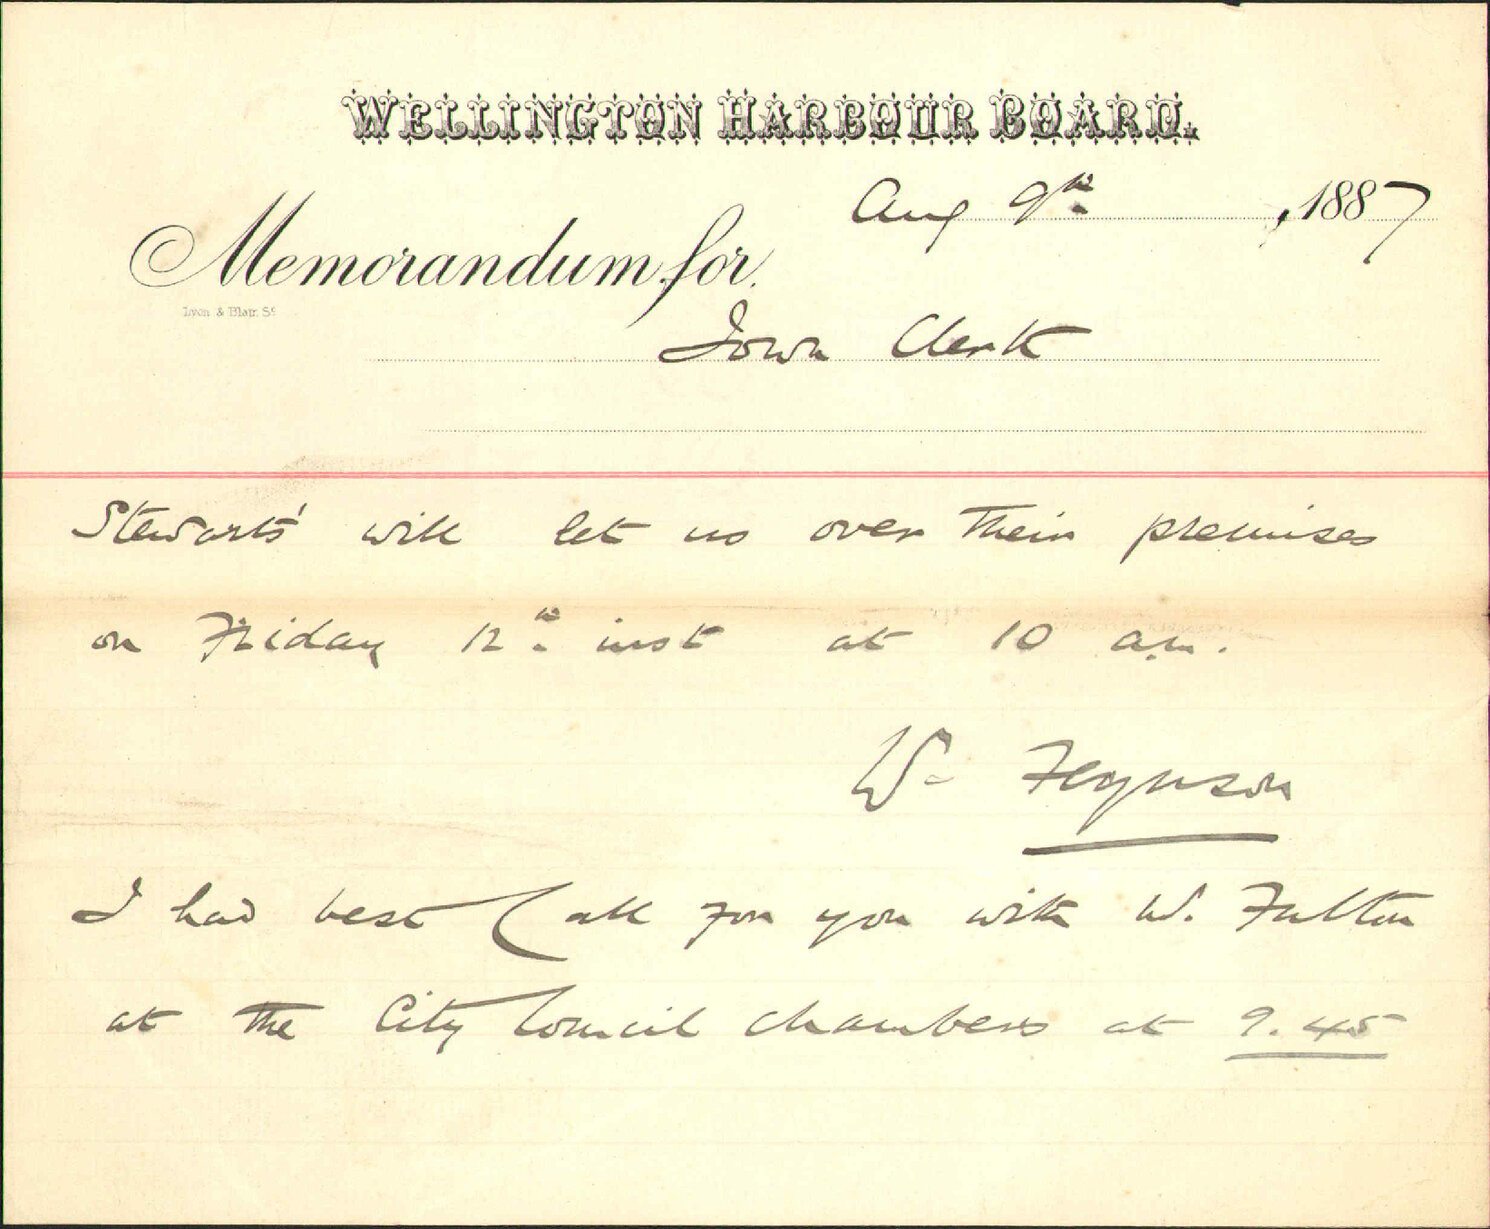 WELLINGTON HARBOUR BOARD.
Aug 9th, 1887
Memorandum for
Lyon & Blair Sc
Town Clerk
Stewarts' will let us over their premises
on Friday 12th inst at 10 a.m.
Wm Ferguson
I had best call for you with W. Fulton
at the City Council chambers at 9.45